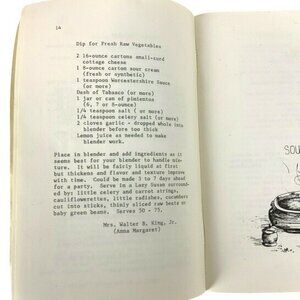 14
Dip for Fresh Raw Vegetables
2 16-ounce cartons small-curd
cottage cheese
1 8-ounce carton sour cream
(fresh or synthetic)
1 teaspoon Worcestershire Sauce
(or more)
Dash of Tabasco (or more)
1 jar or can of pimientos
(6, 7 or 8-ounce)
1/4 teaspoon salt ( or more)
1/4 teaspoon celery salt (or more)
2 cloves garlic - dropped whole into
blender before too thick
Lemon juice as needed to make
blender work.
Place in blender and add ingredients as it
seems best for your blender to handle mix-
ture. It will be fairly liquid at first
but thickens and flavor and texture improve
with time. Could be made 3 to 7 days ahead
for a party. Serve in a Lazy Susan surround-
ed by: little celery and carrot strings,
cauliflowerettes, little radishes, cucumbers
cut into sticks, thinly sliced raw beets on
baby green beans. Serves 50 - 75.
Mrs. Walter B. King, Jr.
(Anna Margaret)
SOU